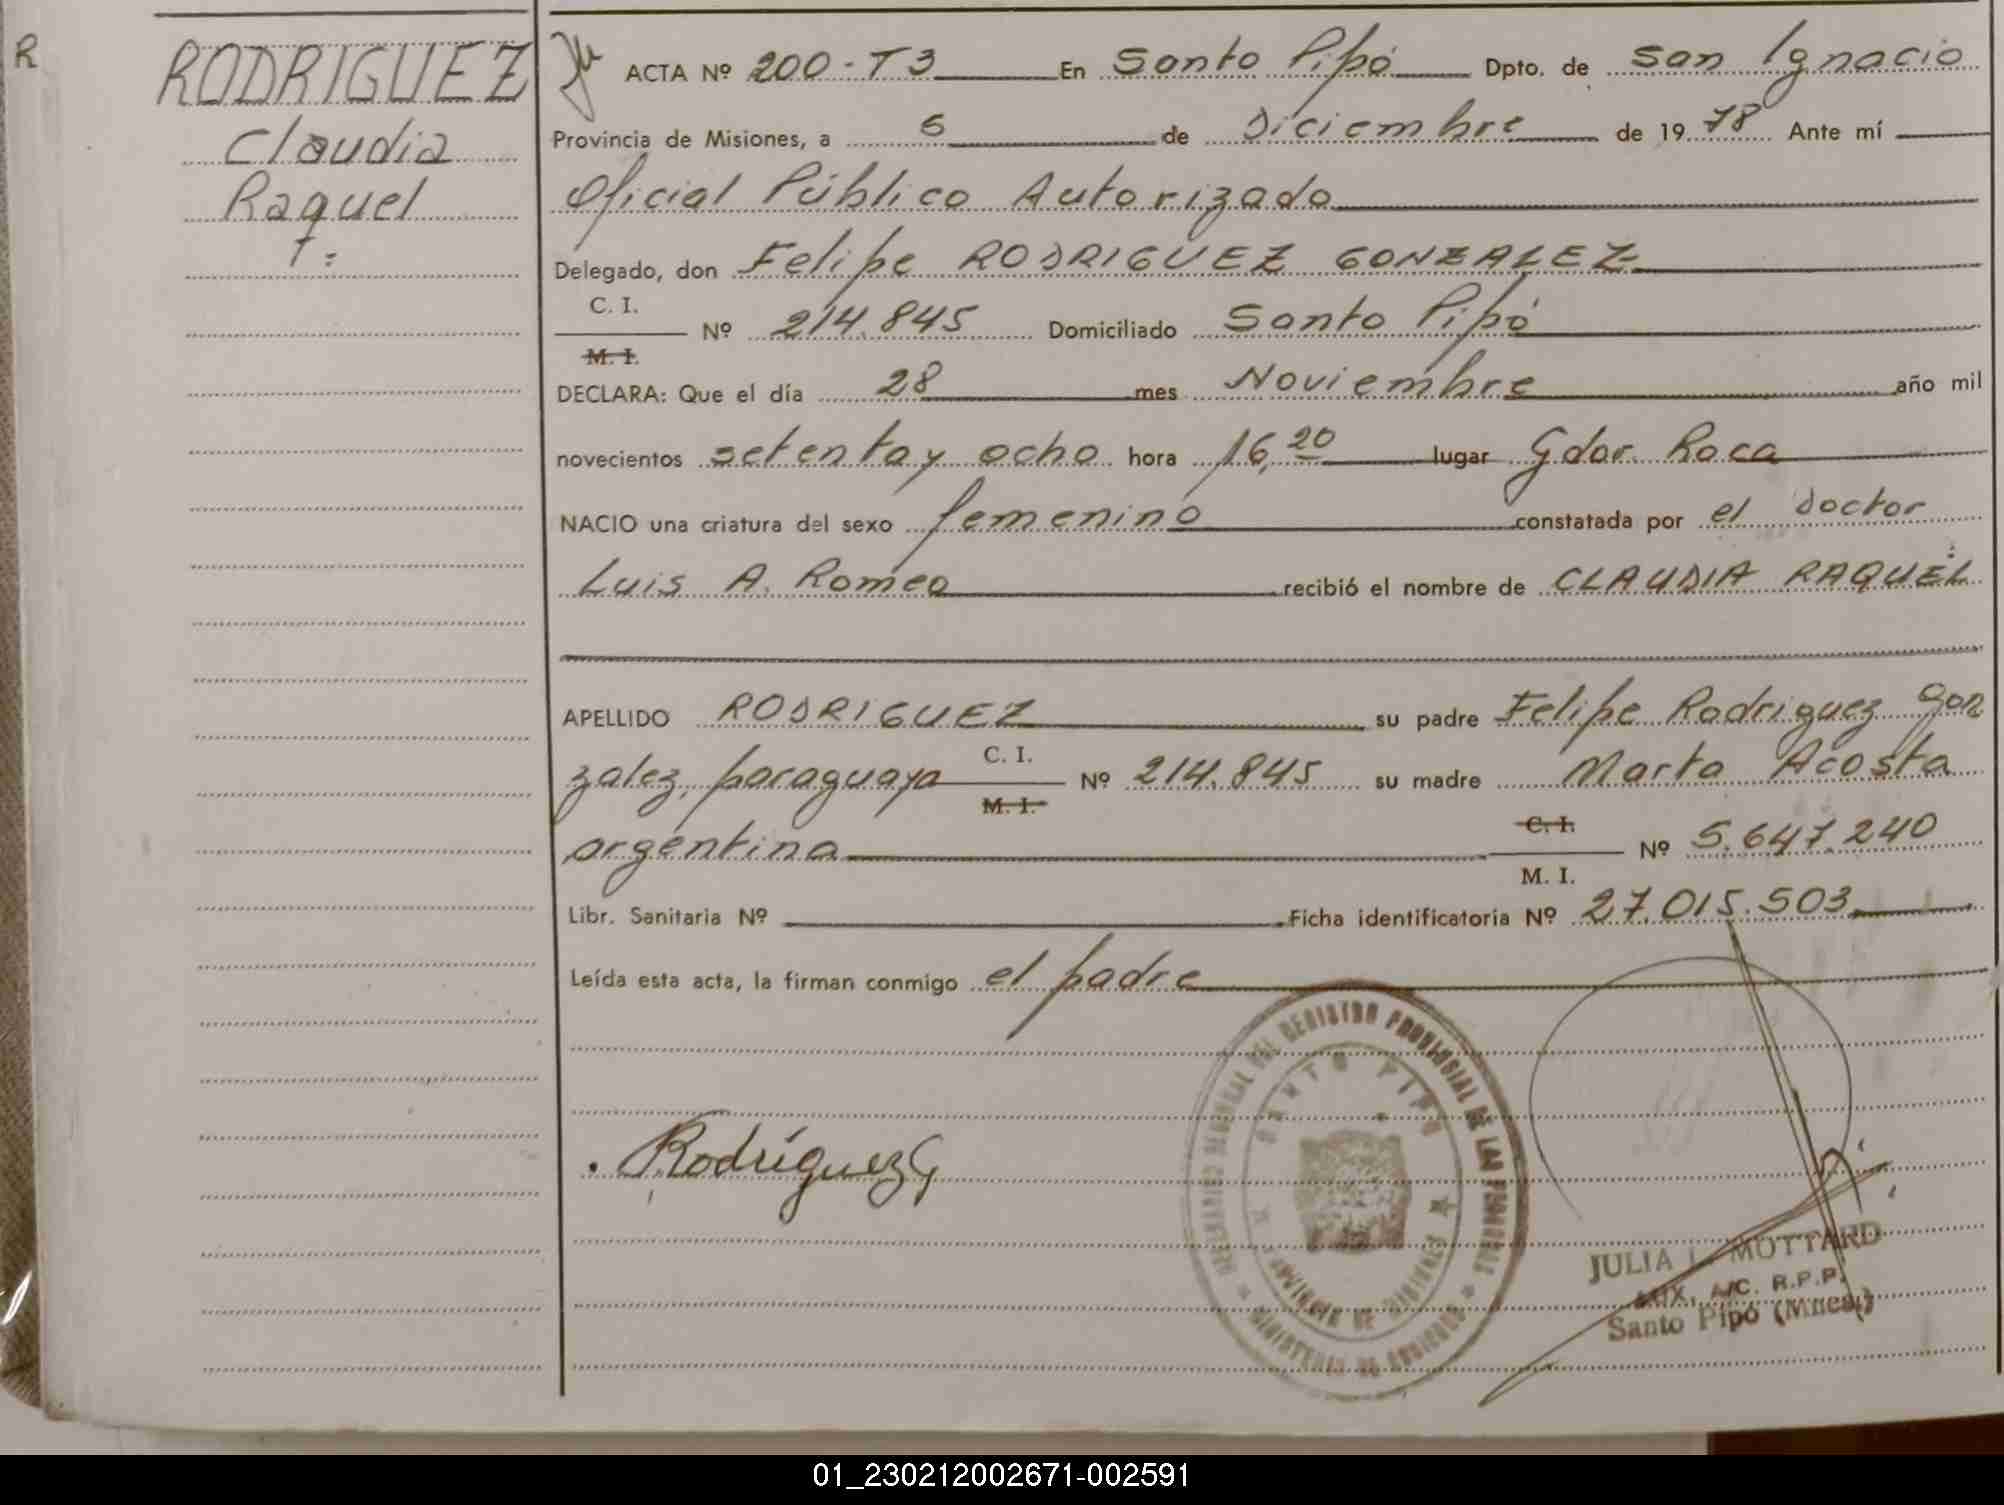 R
RODRIGUEZ
Claudia
Raquel
T=
ACTA Nº 200-T3 En Santo Pipó Dpto. de San Ignacio
Provincia de Misiones, a 6 de Diciembre de 1978 Ante mí
Oficial Público Autorizado
Delegado, don Felipe RODRIGUEZ GONZALEZ
C. I.
Nº 214.845 Domiciliado Santo Pipó
M. I.
DECLARA: Que el día 28 mes Noviembre año mil
novecientos setenta y ocho hora 16,20 lugar Gdor. Roca
NACIO una criatura del sexo femenino constatada por el doctor
Luis A. Romeo recibió el nombre de CLAUDIA RAQUEL
APELLIDO RODRIGUEZ su padre Felipe Rodriguez Gon
zalez, paraguaya C. I. Nº 214.845 su madre Marta Acosta
M. I.
argentina C. I. Nº 5.647.240
M. I.
Libr. Sanitaria Nº Ficha identificatoria Nº 27.015.503
Leída esta acta, la firman conmigo el padre
GENERAL DEL REGISTRO PROVINCIAL DE LAS PERSONAS
SANTO PIPO
PROVINCIA DE MISIONES
MINISTERIO DE GOBIERNO
Rodríguez G
JULIA L. MOTTARD
AUX. A/C. R.P.P.
Santo Pipó (Mnes.)
01_230212002671-002591